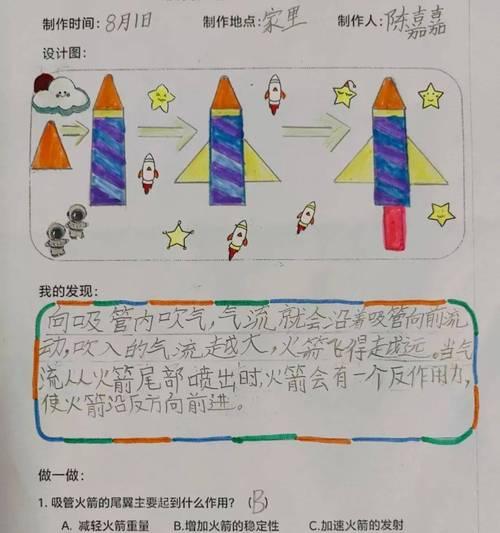 制作时间：8月1日 制作地点：家里 制作人：陈嘉嘉
设计图：
我的发现：
向吸管内吹气，气流就会沿着吸管向前流
动，吹入的气流越大，火箭飞得越远。当气
流从火箭尾部喷出时，火箭会有一个反作用力，
使火箭沿反方向前进。
做一做：
1. 吸管火箭的尾翼主要起到什么作用？（B）
A. 减轻火箭重量 B.增加火箭的稳定性 C.加速火箭的发射